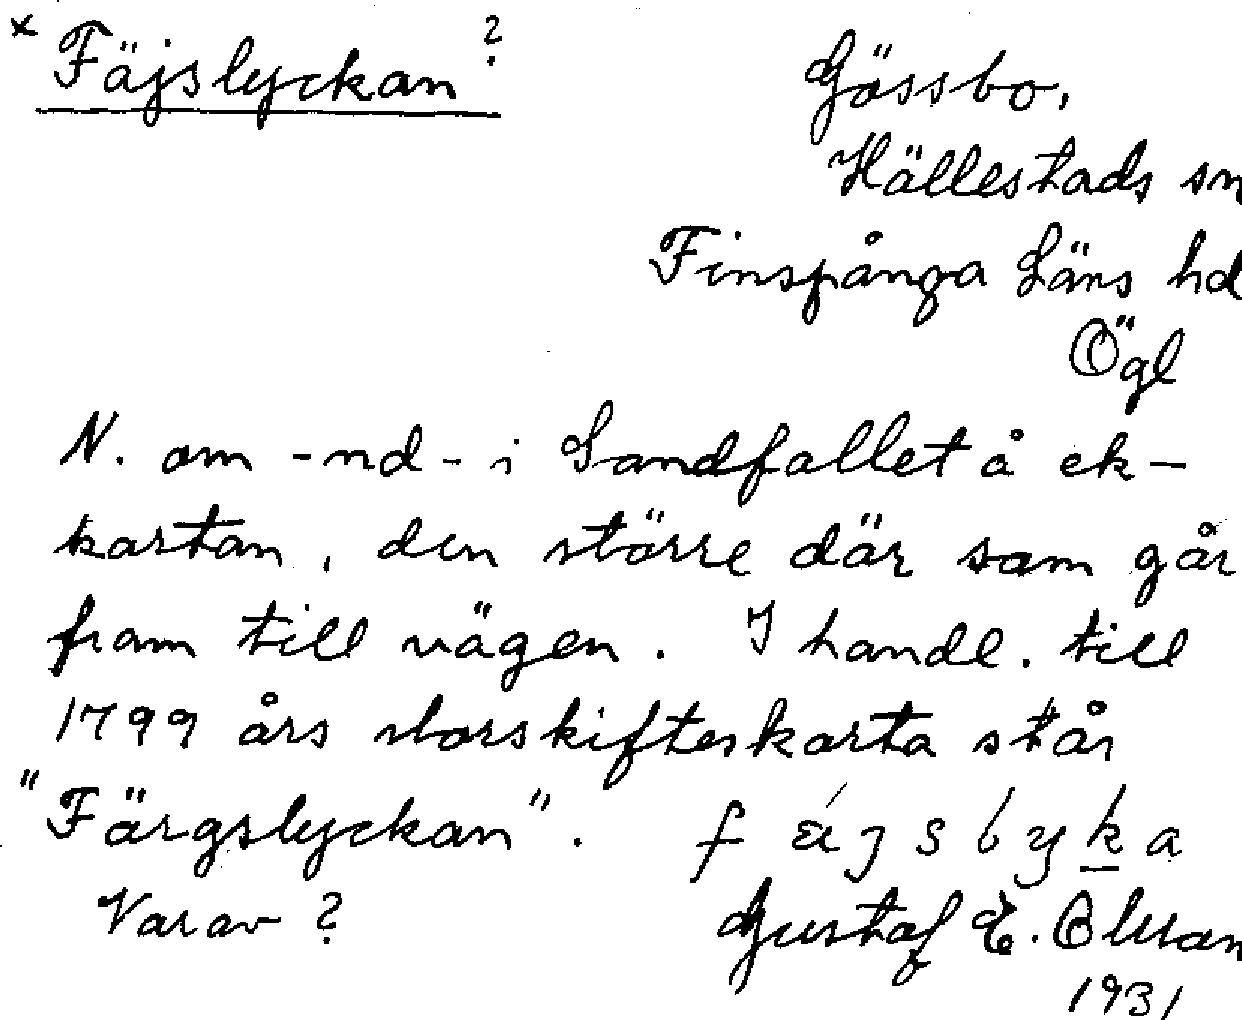 × Fäjslyckan ?
Gössbo,
Hällestads sn
Finspånga Läns hd
Ögl
N. om -nd- i Sandfallet å ek-
kartan, den större där som går
fram till vägen. I handl. till
1799 års storskifteskarta står
"Färgslyckan".
Varav ?
Gustaf E. Olsson
1931